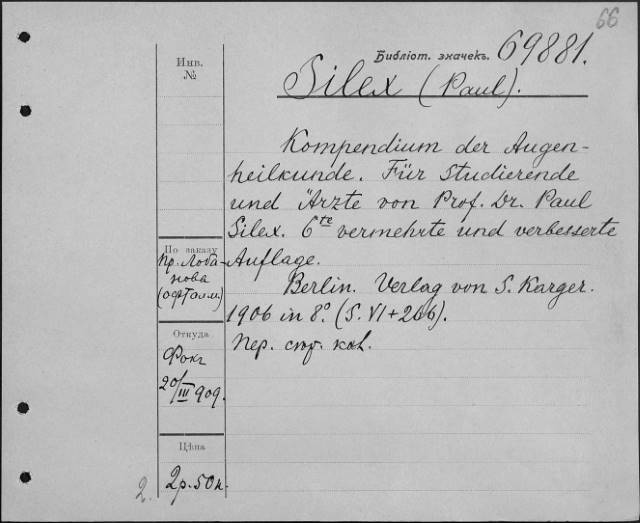 66
Библіот. значекъ. 69881.
Инв.
№
Silex (Paul).
Kompendium der Augen-
heilkunde. Für Studierende
und Ärzte von Prof. Dr. Paul
Silex. 6te vermehrte und verbesserte
Auflage.
Berlin. Verlag von S. Karger.
1906 in 8º. (S. VI+266).
Пер. кол.
По заказу
Пр. Лоба-
нова
(офталм.)
Откуда
Фокъ
20/III 909.
Цѣна
2р. 50к.
2.